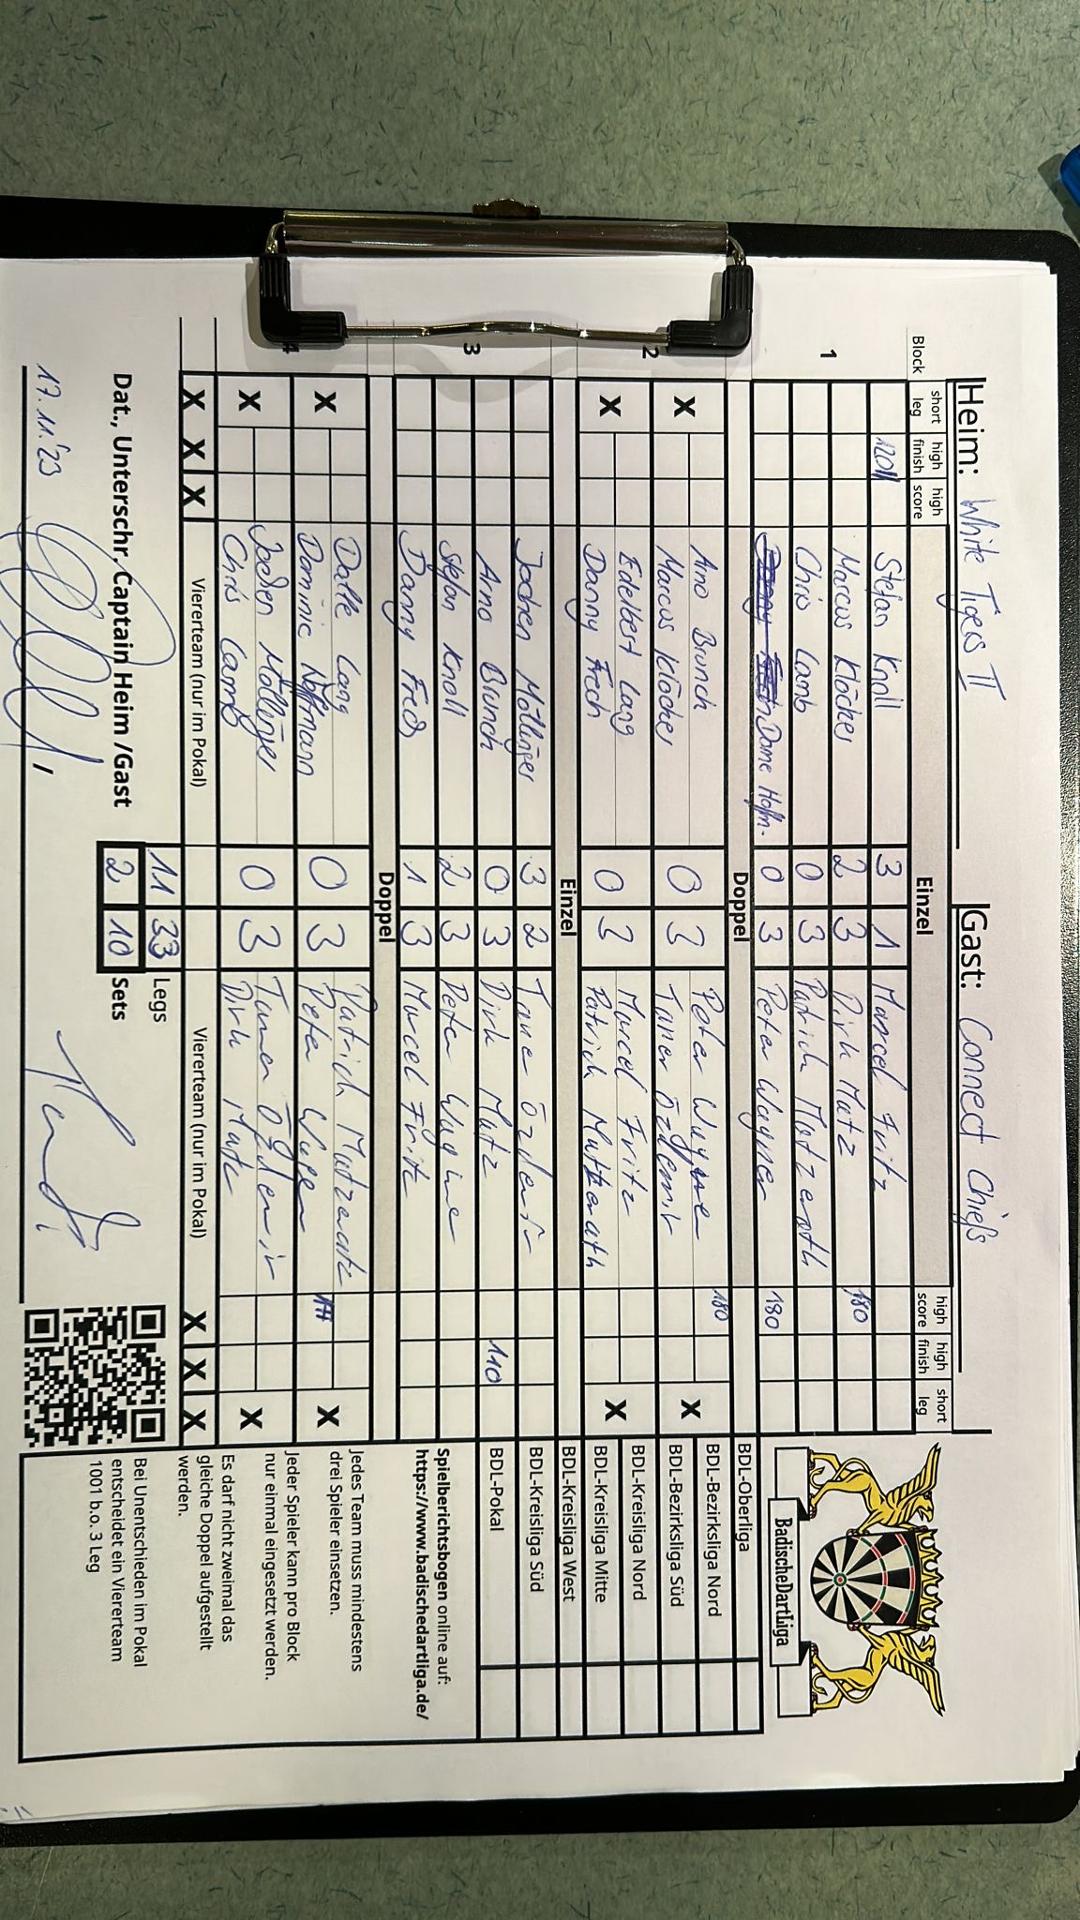 Heim: White Tigers II Gast: Connect Chiefs
Block short leg high finish high score Einzel high score high finish short leg
1
120 Stefan Knoll 3 1 Marcel Fritz
Marcus Klöcher 2 3 Dirk Matz 180
Chris Lamb 0 3 Patrick Matzerath
Dome Hofm. 0 3 Peter Wagner 180
Doppel
2
X Arno Brunch 0 3 Peter Wagner 180 X
Marcus Klöcher Taner Özdemir
X Edelbert Lang 0 3 Marcel Fritz X
Danny Frech Patrick Matzerath
Einzel
3
Jochen Möllinger 3 2 Taner Özdemir
Arno Brunch 0 3 Dirk Matz 110
Stefan Knoll 2 3 Peter Wagner
Danny Frech 1 3 Marcel Fritz
Doppel
4
X Lang 0 3 Patrick Matzerath X
Dominic Hoffmann Peter Wagner
X Jochen Möllinger 0 3 Taner Özdemir X
Chris Lamb Dirk Matz
X X X Viererteam (nur im Pokal) Viererteam (nur im Pokal) X X X
11 33 Legs
Dat., Unterschr. Captain Heim /Gast 2 10 Sets
17.11.'23
BadischeDartLiga
BDL-Oberliga
BDL-Bezirksliga Nord
BDL-Bezirksliga Süd
BDL-Kreisliga Nord
BDL-Kreisliga Mitte
BDL-Kreisliga West
BDL-Kreisliga Süd
BDL-Pokal
Spielberichtsbogen online auf:
https://www.badischedartliga.de/
Jedes Team muss mindestens
drei Spieler einsetzen.
Jeder Spieler kann pro Block
nur einmal eingesetzt werden.
Es darf nicht zweimal das
gleiche Doppel aufgestellt
werden.
Bei Unentschieden im Pokal
entscheidet ein Viererteam
1001 b.o. 3 Leg